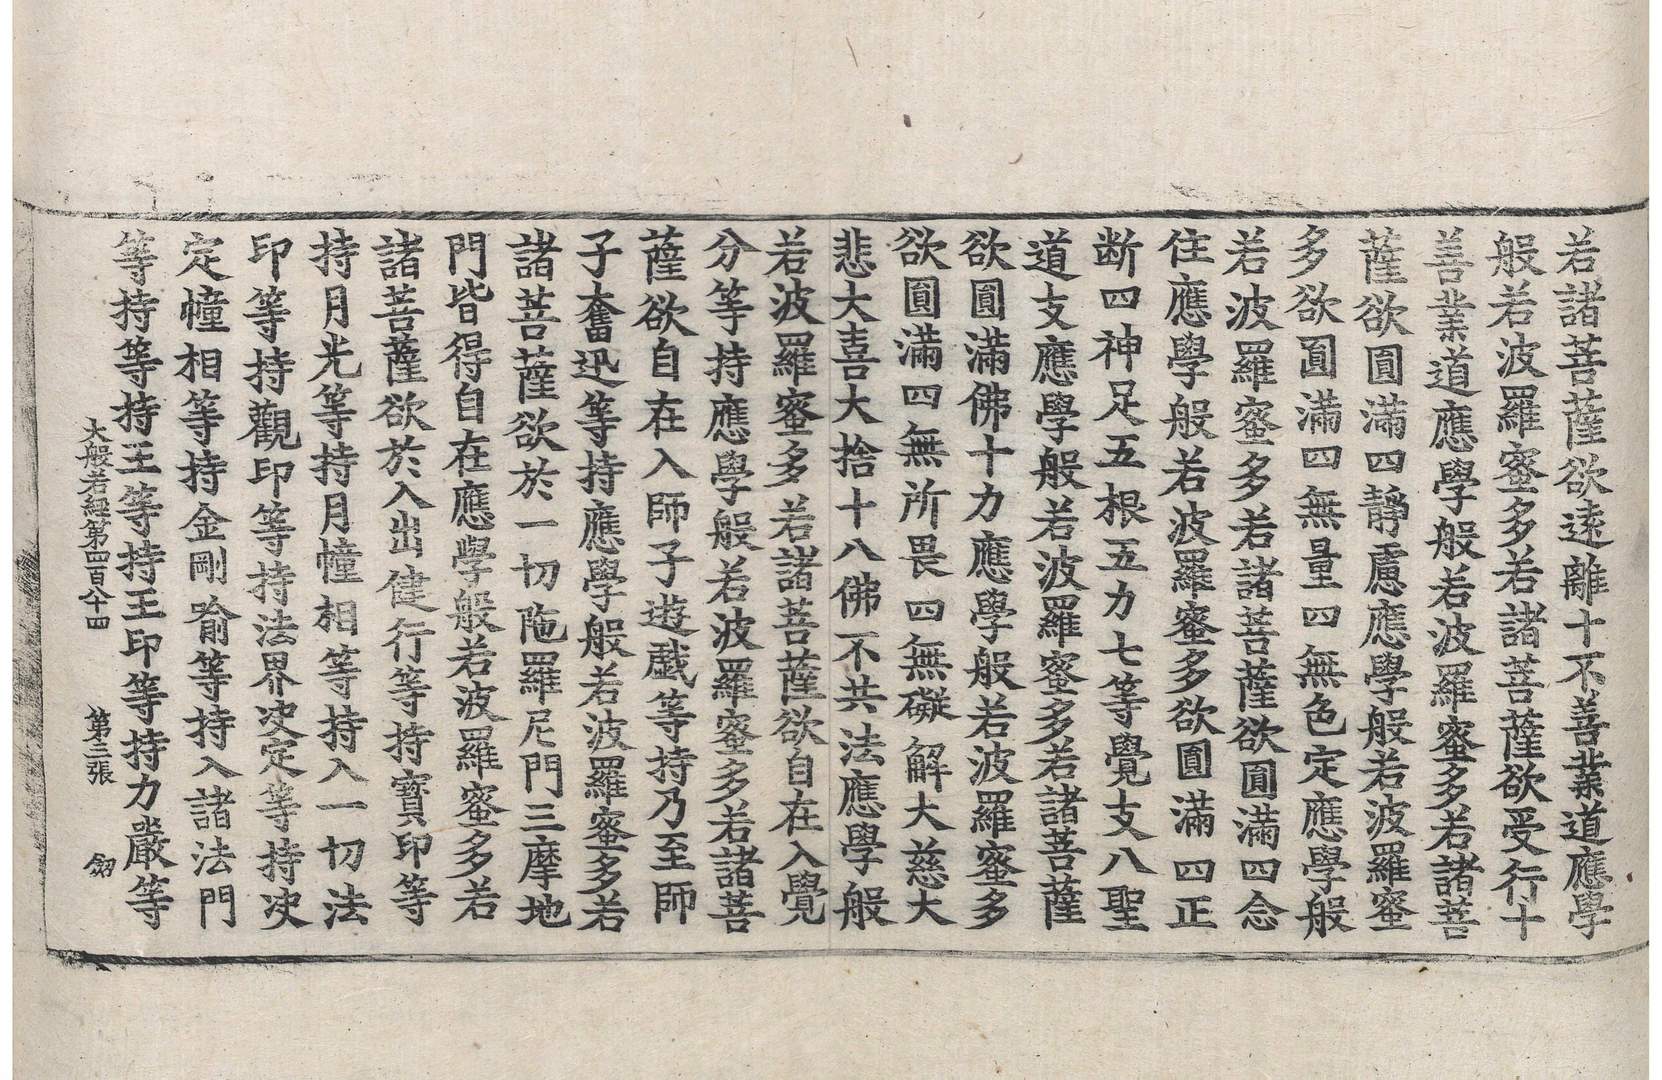 若諸菩薩欲遠離十不善業道應學
般若波羅蜜多若諸菩薩欲受行十
善業道應學般若波羅蜜多若諸菩
薩欲圓滿四靜慮應學般若波羅蜜
多欲圓滿四無量四無色定應學般
若波羅蜜多若諸菩薩欲圓滿四念
住應學般若波羅蜜多欲圓滿四正
断四神足五根五力七等覺支八聖
道支應學般若波羅蜜多若諸菩薩
欲圓滿佛十力應學般若波羅蜜多
欲圓滿四無所畏四無礙解大慈大
悲大喜大捨十八佛不共法應學般
若波羅蜜多若諸菩薩欲自在入覺
分等持應學般若波羅蜜多若諸菩
薩欲自在入師子遊戱等持乃至師
子奮迅等持應學般若波羅蜜多若
諸菩薩欲於一切陁羅尼門三摩地
門皆得自在應學般若波羅蜜多若
諸菩薩欲於入出健行等持寶印等
持月光等持月幢相等持入一切法
印等持觀印等持法界决定等持决
定幢相等持金剛喻等持入諸法門
等持等持王等持王印等持力嚴等
大般若經第四百八十四 第三張 劒